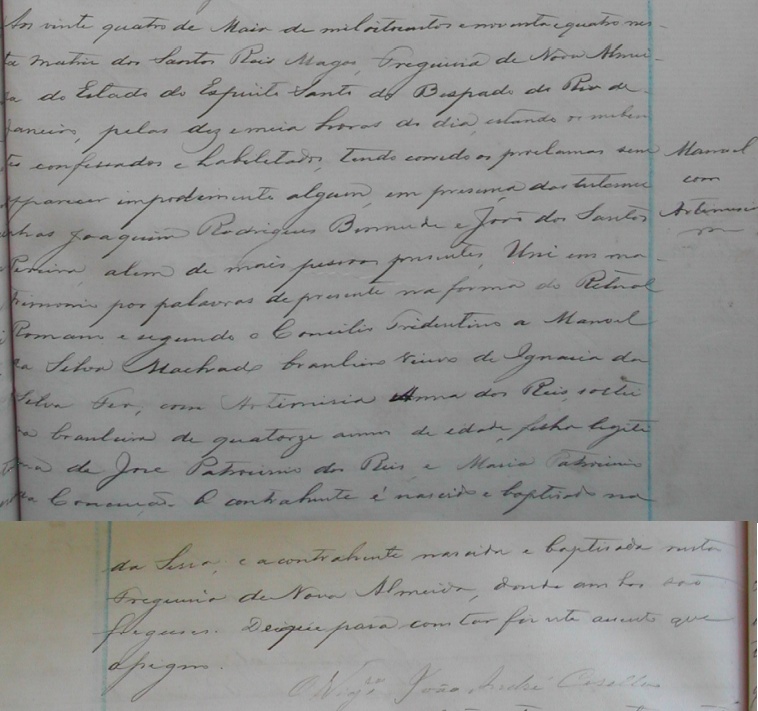 Aos vinte quatro de Maio de mil oitocentos e noventa e quatro nes-
ta Matriz dos Santos Reis Magos, Freguesia de Nova Almei-
da do Estado do Espirito Santo do Bispado do Rio de
Janeiro, pelas dez e meia horas do dia, estando os nuben
tes confessados e habilitados, tendo corrido os proclamas sem
apparecer impedimento algum, em presença das testemu
nhas Joaquim Rodrigues Bermude e João dos Santos
Pereira, alem de mais pessoas presentes, Uni em ma-
trimonio por palavras de presente na forma do Retual
Romano e segundo o Concilio Tridentino a Manoel
da Silva Machado brasileiro viuvo de Ignacia da
Silva com Artimisia Anna dos Reis, soltei
ra brasileira de quatorze annos de edade, filha legiti
ma de Jose Patrocinio dos Reis e Maria Patrocinio
da Conceição. O contrahente é nascido e baptisado na
Manoel
com
Artimisia
da Serra, e a contrahente nascida e baptisada nesta
Freguesia de Nova Almeida, donde ambos são
fregueses. De que para constar fiz este assento que
assigno.
O Vigrº João André Casella